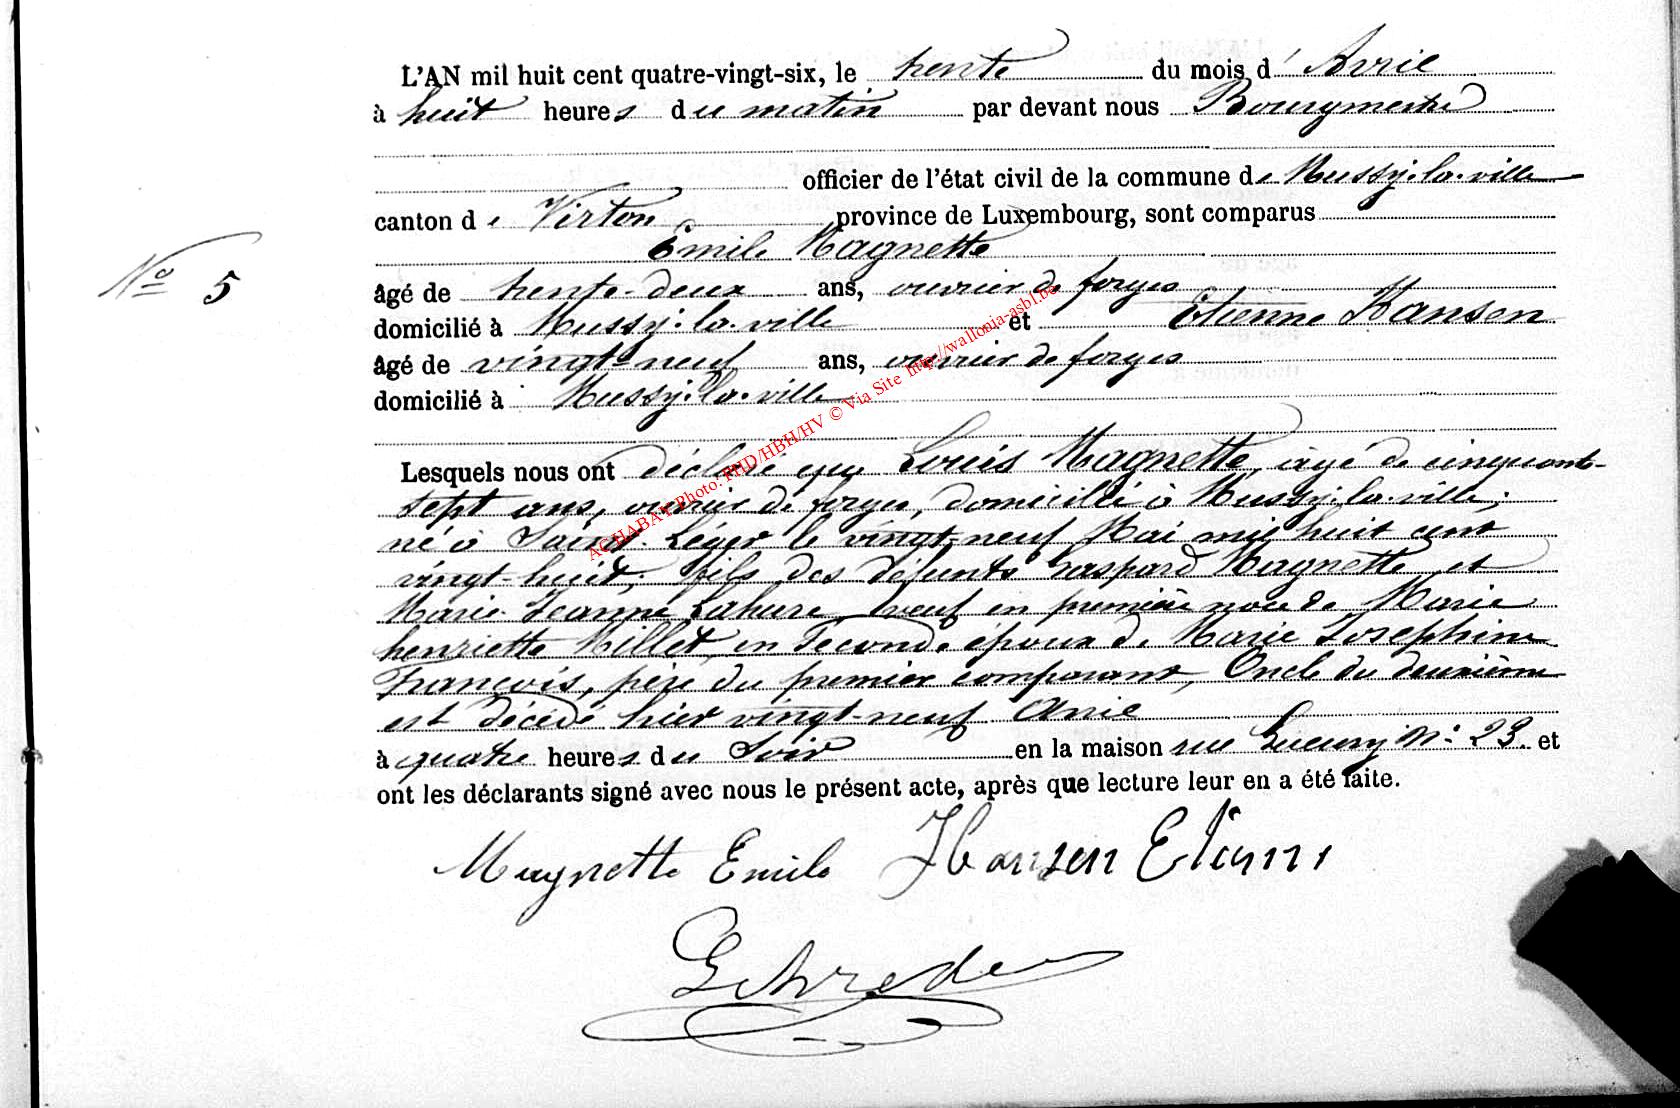 L'AN mil huit cent quatre-vingt-six, le trente du mois d'Avril
à huit heures du matin par devant nous Bourgmestre
officier de l'état civil de la commune de Mussy-la-ville
canton de Virton province de Luxembourg, sont comparus
Emile Magnette
N° 5
âgé de trente-deux ans, ouvrier de forges
domicilié à Mussy-la-ville et Etienne Hansen
âgé de vingt-neuf ans, ouvrier de forges
domicilié à Mussy-la-ville
Lesquels nous ont déclaré que Louis Magnette, âgé de cinquante-
sept ans, ouvrier de forges, domicilié à Mussy-la-ville,
né à Saint-Léger le vingt-neuf Mai mil huit cent
vingt-huit, fils des défunts Gaspard Magnette et
Marie-Jeanne Lahure, veuf en première noce de Marie
henriette Millet, en seconde époux de Marie Josephine
François, père du premier comparant, Oncle du deuxième
est décédé hier vingt-neuf Avril
à quatre heures du Soir en la maison rue N° 23. et
ont les déclarants signé avec nous le présent acte, après que lecture leur en a été faite.
Magnette Emile Hansen Etienne
Schreder
ACHABAY Photo: PHD/HBH/HV © Via Site http://wallonia-asbl.be